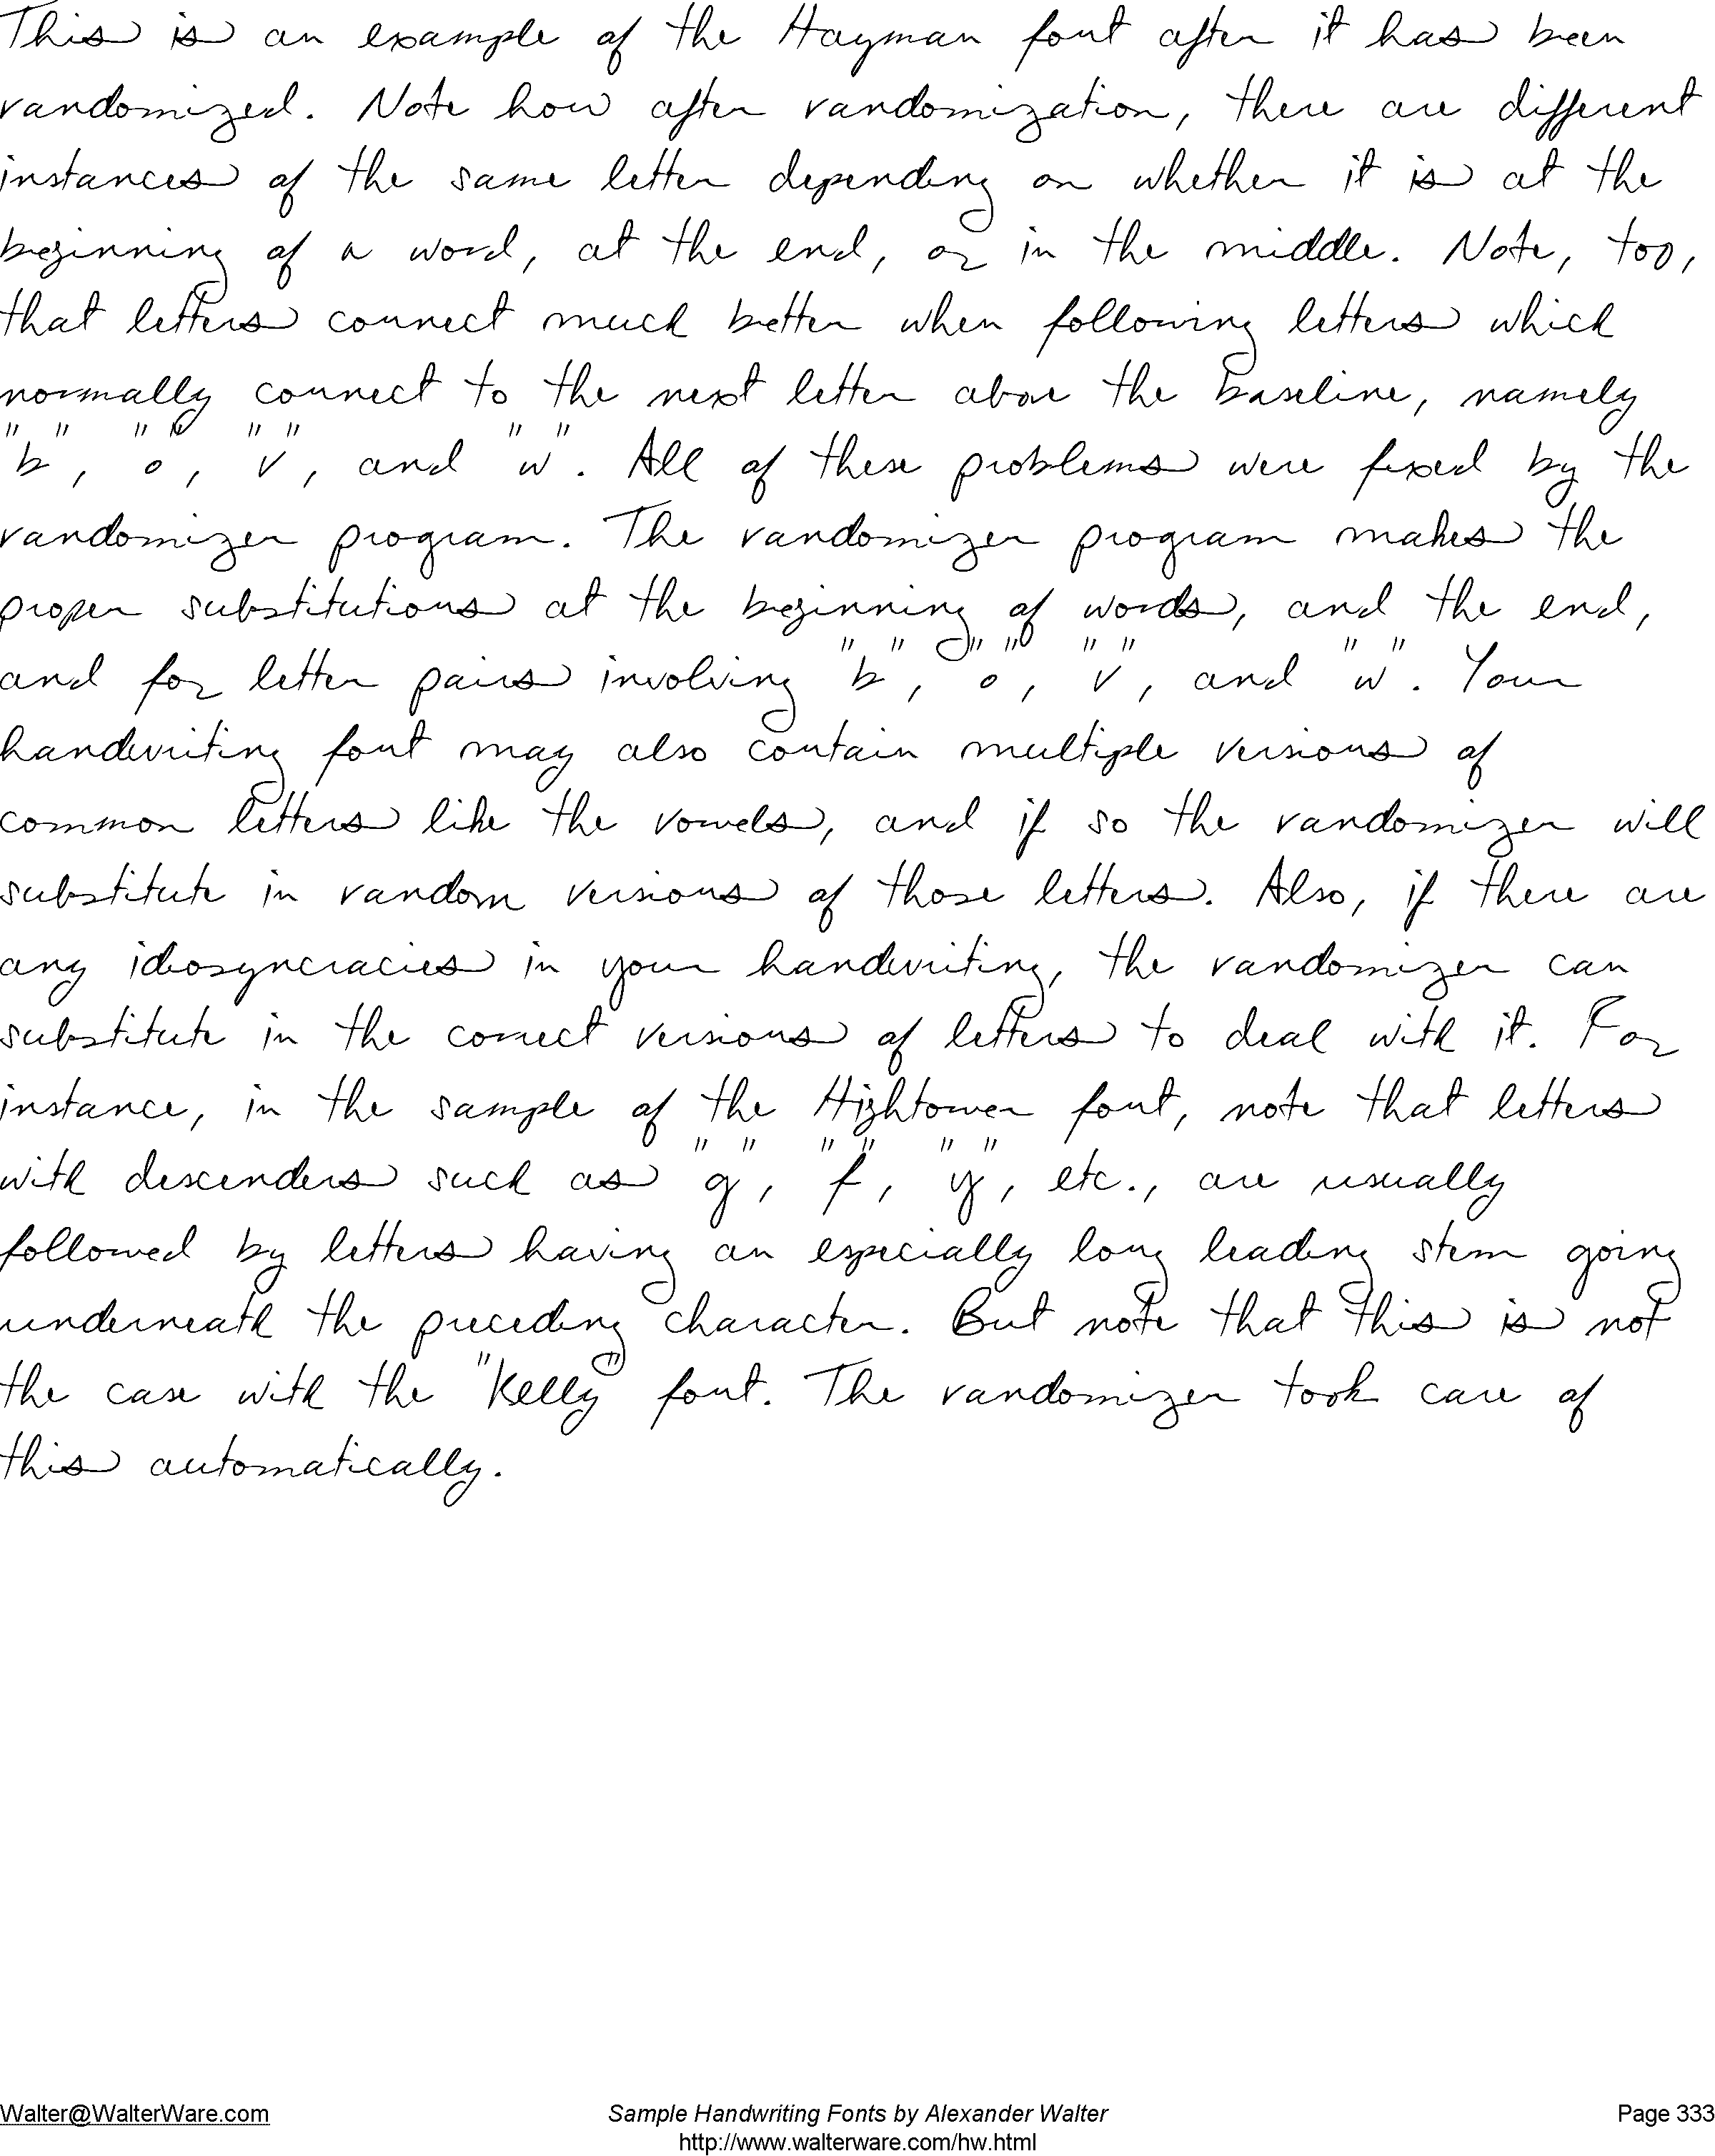 This is an example of the Hayman font after it has been
randomized. Note how after randomization, there are different
instances of the same letter depending on whether it is at the
beginning of a word, at the end, or in the middle. Note, too,
that letters connect much better when following letters which
normally connect to the next letter above the baseline, namely
"b", "o", "v", and "w". All of these problems were fixed by the
randomizer program. The randomizer program makes the
proper substitutions at the beginning of words, and the end,
and for letter pairs involving "b", "o", "v", and "w". Your
handwriting font may also contain multiple versions of
common letters like the vowels, and if so the randomizer will
substitute in random versions of those letters. Also, if there are
any idiosyncracies in your handwriting, the randomizer can
substitute in the correct versions of letters to deal with it. For
instance, in the sample of the Hightower font, note that letters
with descenders such as "g", "f", "y", etc., are usually
followed by letters having an especially long leading stem going
underneath the preceding character. But note that this is not
the case with the "Kelly" font. The randomizer took care of
this automatically.
Walter@WalterWare.com Sample Handwriting Fonts by Alexander Walter Page 333
http://www.walterware.com/hw.html